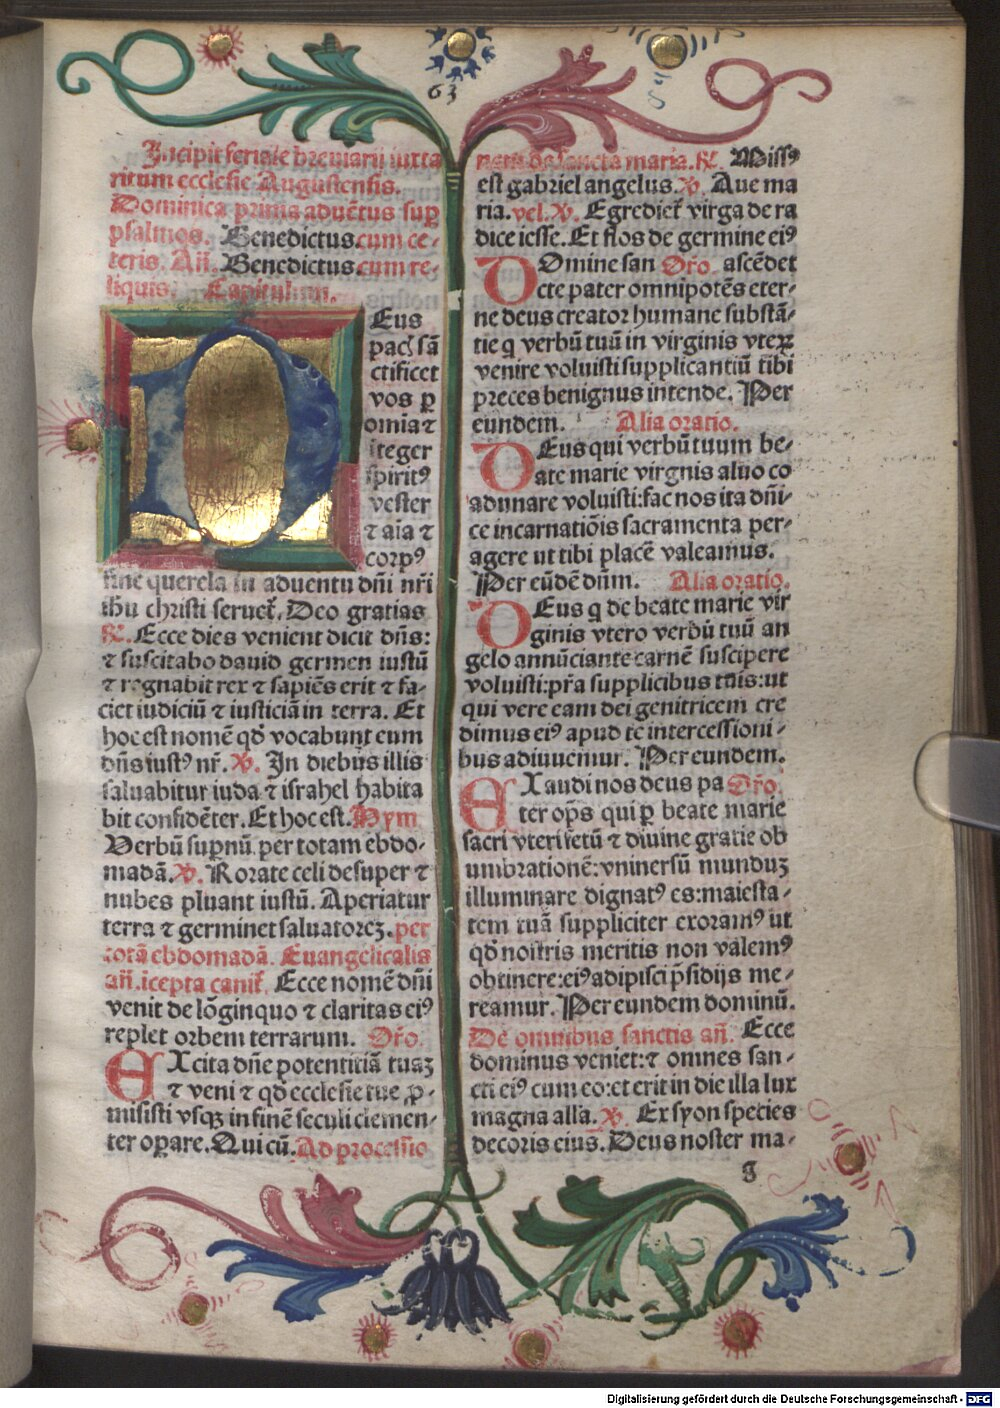 63
Incipit feriale breviarii iuxta
ritum ecclesie Augustensis.
Dominica prima aduētus sup
psalmos. Benedictus cum ce-
teris. Añ. Benedictus cum re-
liquis. Capitulum.
DEus
pacꝭ sā
ctificet
vos ꝑ
omīa ⁊
īteger
spiritꝰ
vester
⁊ aīa ⁊
corpꝰ
sine querela in aduentu dñi nr̄i
ihū christi seruet᷑. Deo gratias
℟. Ecce dies venient dicit dñs:
⁊ suscitabo dauid germen iustū
⁊ regnabit rex ⁊ sapiēs erit ⁊ fa-
ciet iudiciū ⁊ iusticiā in terra. Et
hoc est nomē qḋ vocabunt eum
dñs iustꝰ nr̄. ℣. In diebus illis
saluabitur iuda ⁊ israhel habita
bit confidēter. Et hoc est. Hym
Verbū suꝑnū. per totam ebdo-
madā. ℣. Rorate celi desuper ⁊
nubes pluant iustū. Aperiatur
terra ⁊ germinet saluatorēꝫ. per
totā ebdomadā. Euangelicalis
añ. icepta canit᷑. Ecce nomē dñi
venit de lōginquo ⁊ claritas eiꝰ
replet orbem terrarum. Or̄o.
EXcita dñe potentiā tuaꝫ
⁊ veni ⁊ qḋ ecclesie tue ꝓ-
misisti vsqꝫ in finē seculi clemen-
ter oꝑare. Qui cū. Ad processio
nem de sancta maria. ℟. Missꝰ
est gabriel angelus. ℣. Aue ma
ria. vel. ℣. Egrediet᷑ virga de ra
dice iesse. Et flos de germine eiꝰ
DOmine san Or̄o. ascēdet
cte pater omnipotēs eter-
ne deus creator humane substā-
tie q verbū tuū in virginis vteꝝ
venire voluisti supplicantiū tibi
preces benignus intende. Per
eundem. Alia oratio.
DEus qui verbū tuum be-
ate marie virginis aluo co
adunare voluisti: fac nos ita dñi-
ce incarnatiōis sacramenta per-
agere ut tibi placē valeamus.
Per eūdē dñm. Alia oratio.
DEus q de beate marie vir
ginis vtero verbū tuū an
gelo annūciante carnē suscipere
voluisti: pr̄a supplicibus tuis: ut
qui vere eam dei genitricem cre
dimus eiꝰ apud te intercessioni-
bus adiuuemur. Per eundem.
EXaudi nos deus pa Or̄o.
ter op̄s qui ꝑ beate marie
sacri vteri fetū ⁊ diuine gratie ob
umbrationē: vniuersū munduꝫ
illuminare dignatꝰ es: maiesta-
tem tuā suppliciter exoramꝰ ut
qḋ nostris meritis non valemꝰ
obtinere: eiꝰ adipisci p̄sidijs me-
reamur. Per eundem dominū.
De omnibus sanctis añ. Ecce
dominus veniet: ⁊ omnes san-
cti eiꝰ cum eo: et erit in die illa lux
magna alla. ℣. Ex syon species
decoris eius. Deus noster ma-
g
Digitalisierung gefördert durch die Deutsche Forschungsgemeinschaft - DFG